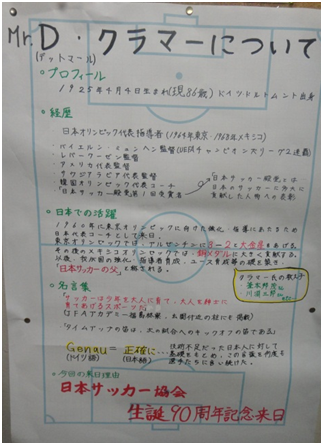 Mr.D・クラマーについて
(デットマール)
○プロフィール
1925年4月4日生まれ(現86歳)ドイツドルトムント出身
○経歴
日本オリンピック代表指導者(1964年東京・1968年メキシコ)
・バイエルン・ミュンヘン監督(UEFAチャンピオンズリーグ2連覇)
・レバークーゼン監督
・アメリカ代表監督
・サウジアラビア代表監督
・韓国オリンピック代表コーチ
・日本サッカー殿堂 第1回受賞者
「日本サッカー殿堂」とは
日本のサッカーに多大に
貢献した人物への表彰
○日本での活躍
1960年に東京オリンピックに向けた強化・指導にあたるため
日本代表コーチとして来日。
東京オリンピックでは、アルゼンチンに3-2と大金星をあげる。
その後のメキシコオリンピックでは、銅メダルに大きく貢献する。
以後、我が国の強化・指導者育成、ユース育成等の礎を築き、
「日本サッカーの父」と称される。
クラマー氏の教え子
釜本邦茂
川淵三郎
etc
○名言集
「サッカーは少年を大人に育て、大人を紳士に
育てあげるスポーツだ」
「タイムアップの笛は、次の試合へのキックオフの笛である」
Genau = 正確に…
(ドイツ語) (日本語)
技術不足だった日本人に対して
基礎をもとめ、この言葉を何度も
選手たちに言い続けた。
○今回の来日理由
日本サッカー協会
生誕90周年記念来日